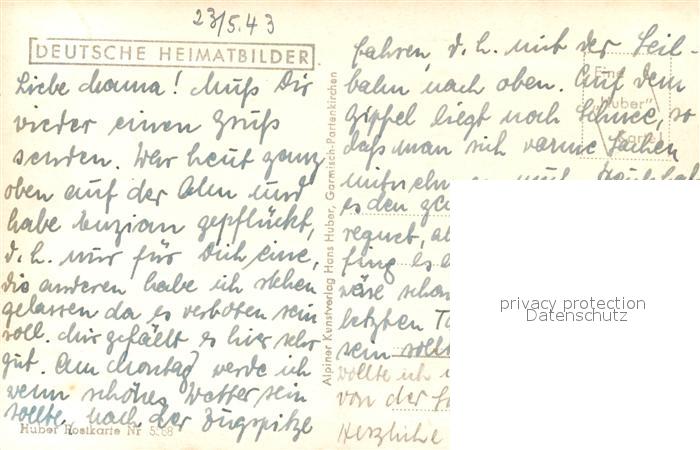 23/5.43
DEUTSCHE HEIMATBILDER
Liebe Mama! Muß Dir
wieder einen Gruß
senden. War heut ganz
oben auf der Alm und
habe Enzian gepflückt,
d. h. nur für Dich eine,
die anderen habe ich stehen
gelassen da es verboten sein
soll. Mir gefällt es hier sehr
gut. Am Montag werde ich
wenn schönes Wetter sein
sollte, nach der Zugspitze
Huber Postkarte Nr
Alpiner Kunstverlag Hans Huber, Garmisch-Partenkirchen
fahren, d. h. mit der Seil-
bahn nach oben. Auf dem
Gipfel liegt noch Schnee, so
daß man sich warme Sachen
mitnehmen muß.
es den
regnet,
fing es
wäre
letzten
sein sollte
wollte ich
von der
Herzliche
Eine
"Huber"
Karte!
privacy protection
Datenschutz